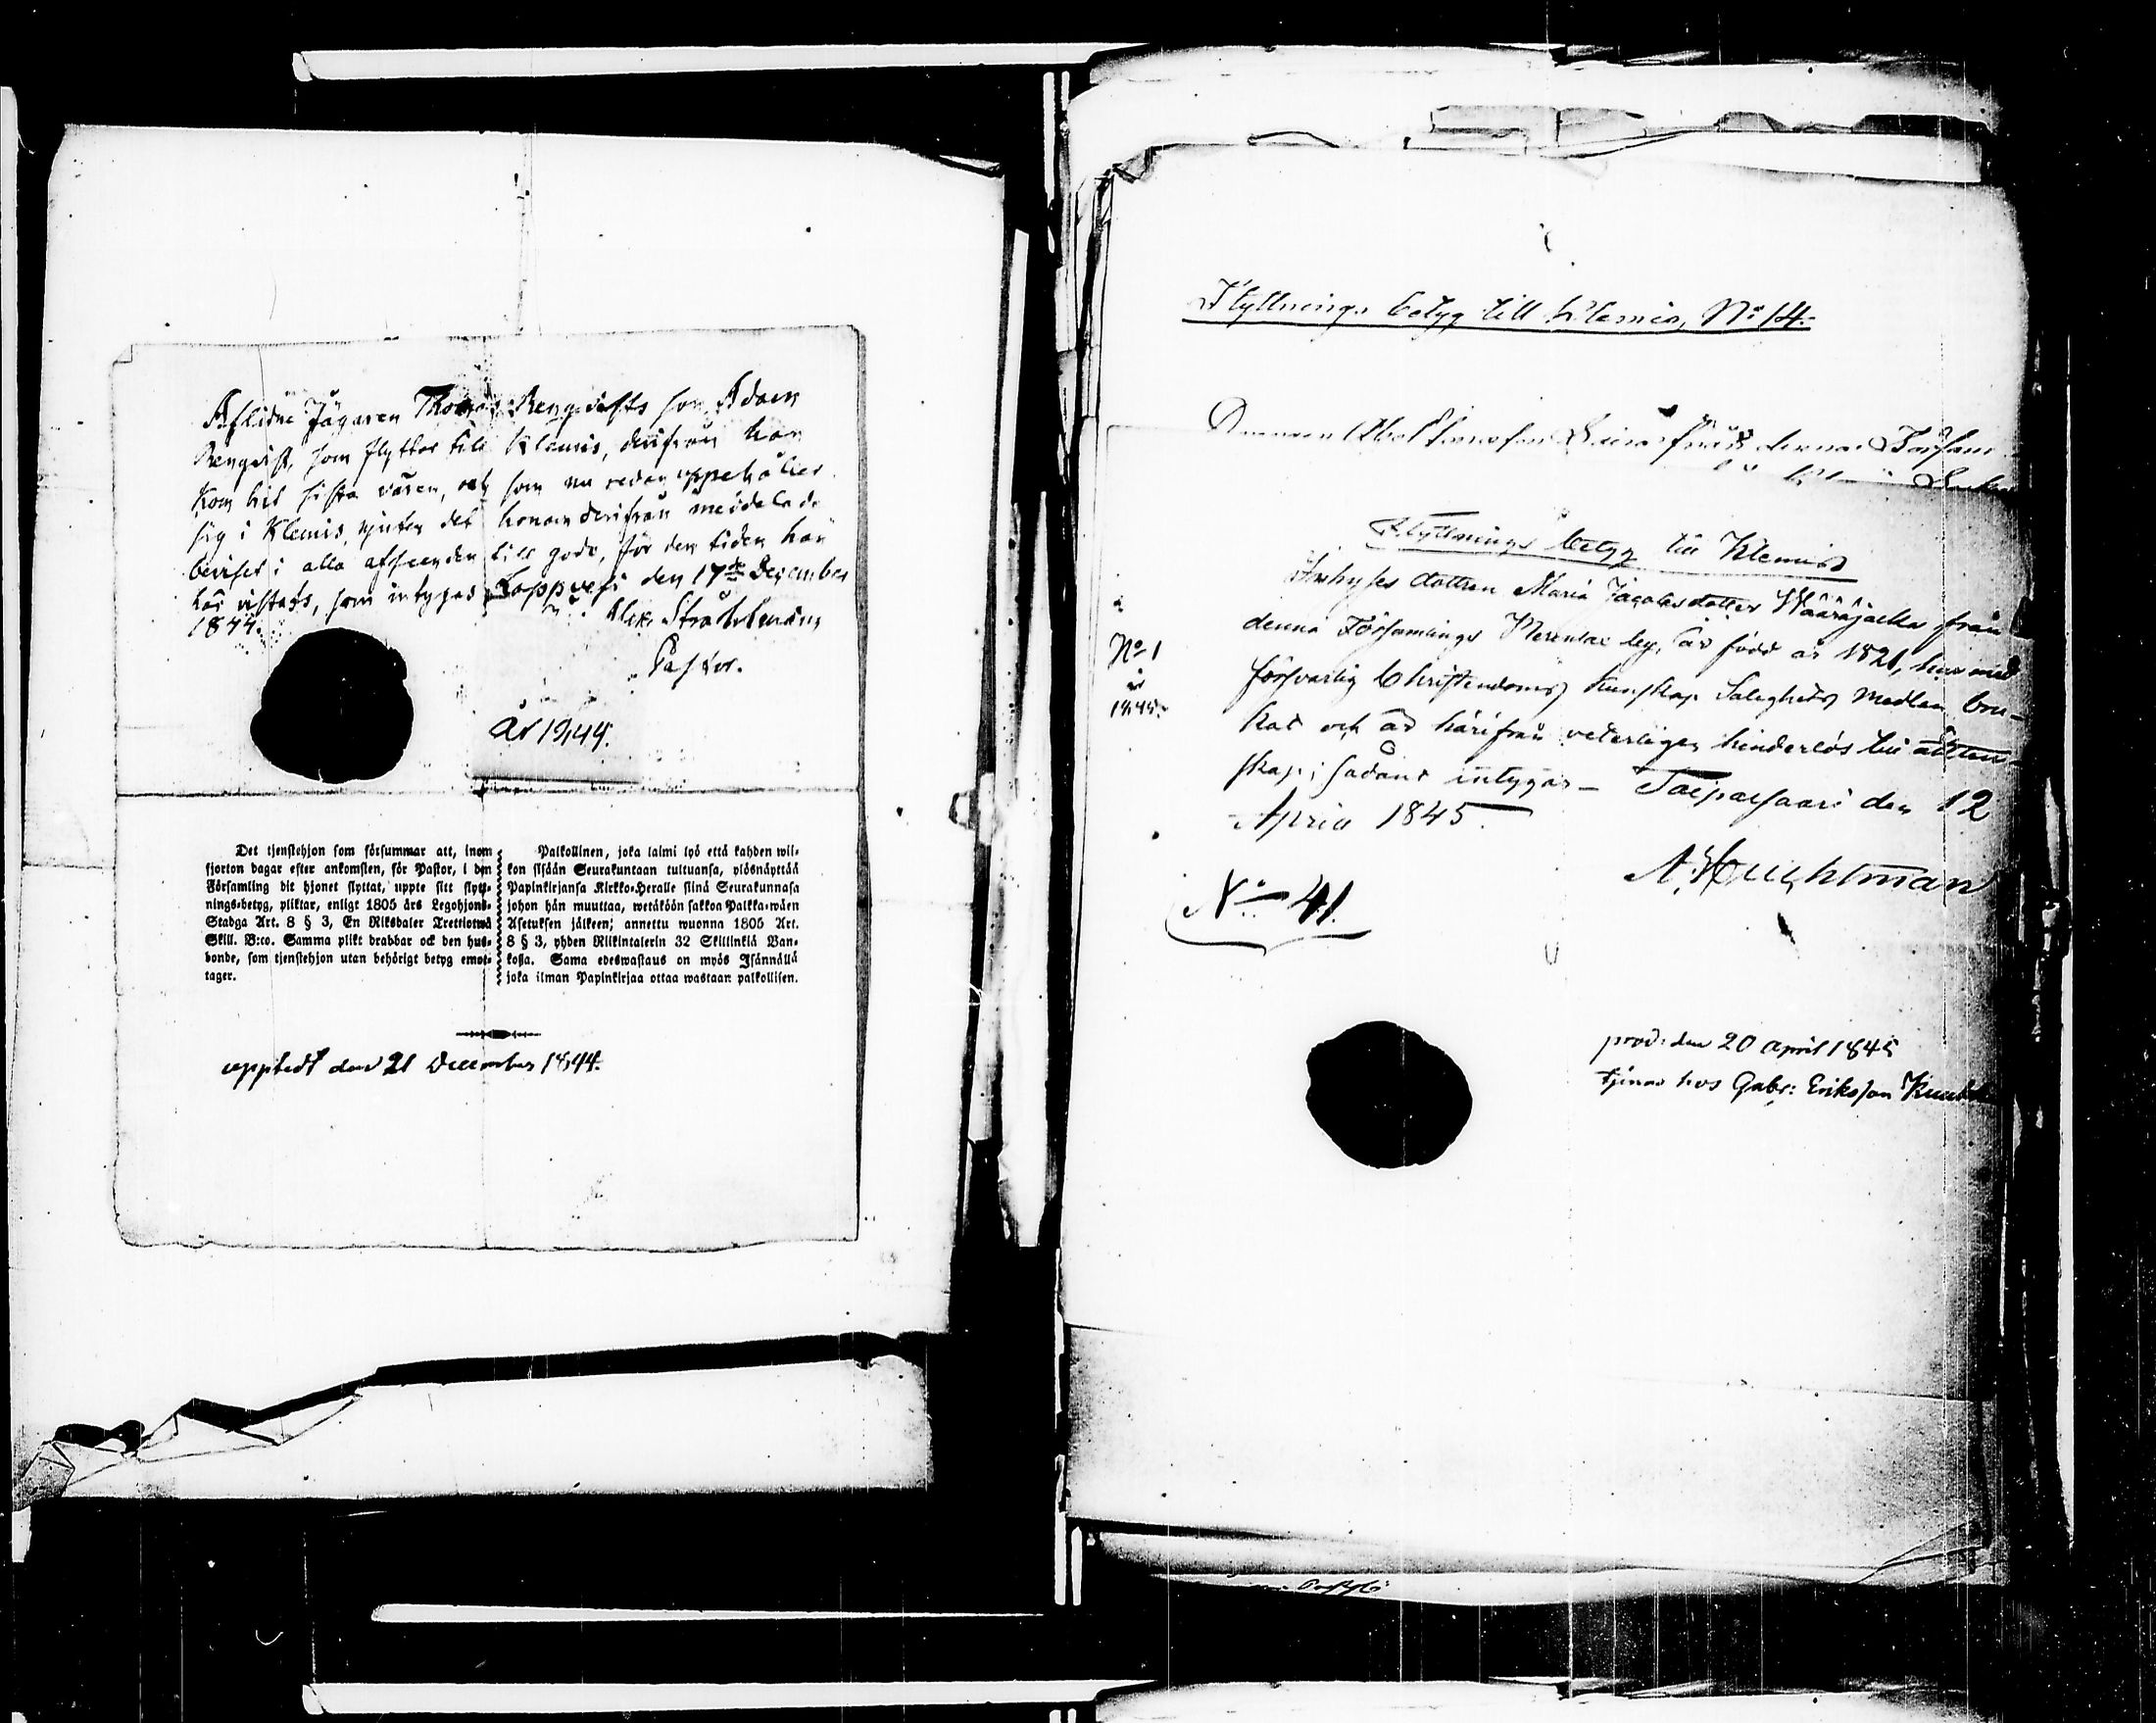 Aflidne Jägaren Thomas Rengvists son Adam
Rengvist, som flyttar till Klemis, derifrån han
kom hit sista våren, och som nu redan uppehåller
sig i Klemis, njuter det honom derifrån meddelade
beviset i alla afseenden till godo, för den tiden han
här vistats, som intygas Lappvesi den 17de December
1844. Alex. Stråhlman
Pastor.
År 1844.
Det tjenstehjon som försummar att, inom
fjorton dagar efter ankomsten, för Pastor, i den
Församling dit hjonet flyttat, uppte sitt flytt-
nings-betyg, pliktar, enligt 1805 års Legohjons-
Stadga Art. 8 § 3, En Riksdaler Trettiotwå
Skill. B:co. Samma plikt drabbar ock den hus-
bonde, som tjenstehjon utan behörigt betyg emot-
tager.
Palkollinen, joka laimi lyö että kahden wii-
kon sisään Seurakuntaan tultuansa, ylösnäyttää
Papinkirjansa Kirkko-Heralle siinä Seurakunnasa
johon hän muuttaa, wetäköön sakkoa Palkka-wäen
Asetuksen jälkeen; annettu wuonna 1805 Art.
8 § 3, yhden Riikintalerin 32 Skillinkiä Ban-
kosa. Sama edeswastaus on myös Isännällä
joka ilman Papinkirjaa ottaa wastaan palkollisen.
upptedt den 21 December 1844.
Flyttnings betyg till Klemis, No 14.
denna Församl
Flyttnings betyg till Klemis
Inhyses dottren Maria Jacobsdotter Wääräjacka från
denna Församlings by, är född år 1821, har med
försvarlig Christendoms kunskap Salighets medlen bru-
kat och är härifrån veterligen hinderlös till äkten
skap; sådant intygas – Taipalsaari den 12
April 1845.
No 1
år
1845.
A. Heughtman
No 41.
prod: den 20 april 1845
tjenar hos Gabr: Eriksson